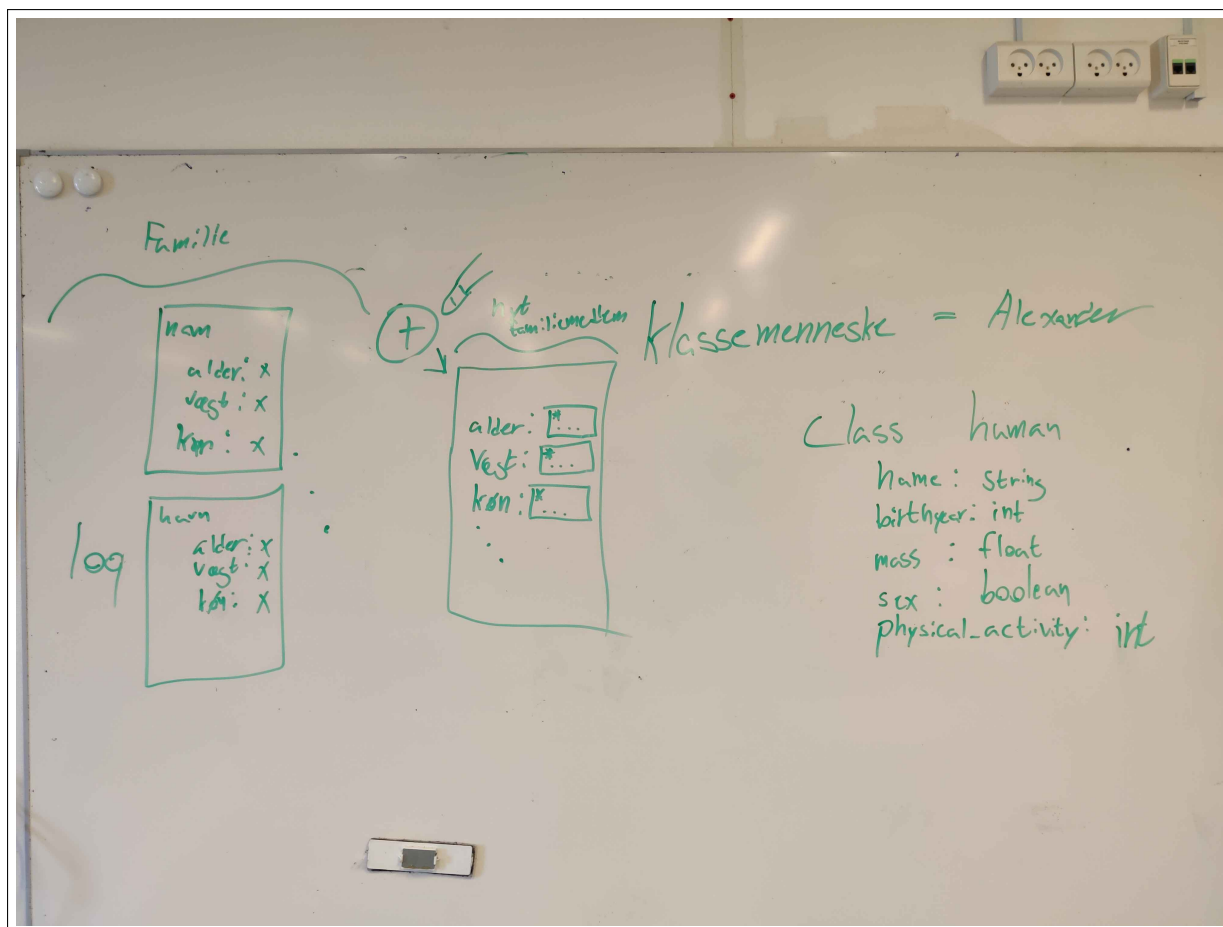 Familie
navn
alder: x
vægt: x
køn: x
log
navn
alder: x
vægt: x
køn: x
+
nyt
familiemedlem
alder: * ...
Vægt: * ...
køn: * ...
klassemenneske = Alexander
Class human
name: string
birthyear: int
mass : float
sex : boolean
physical_activity: int